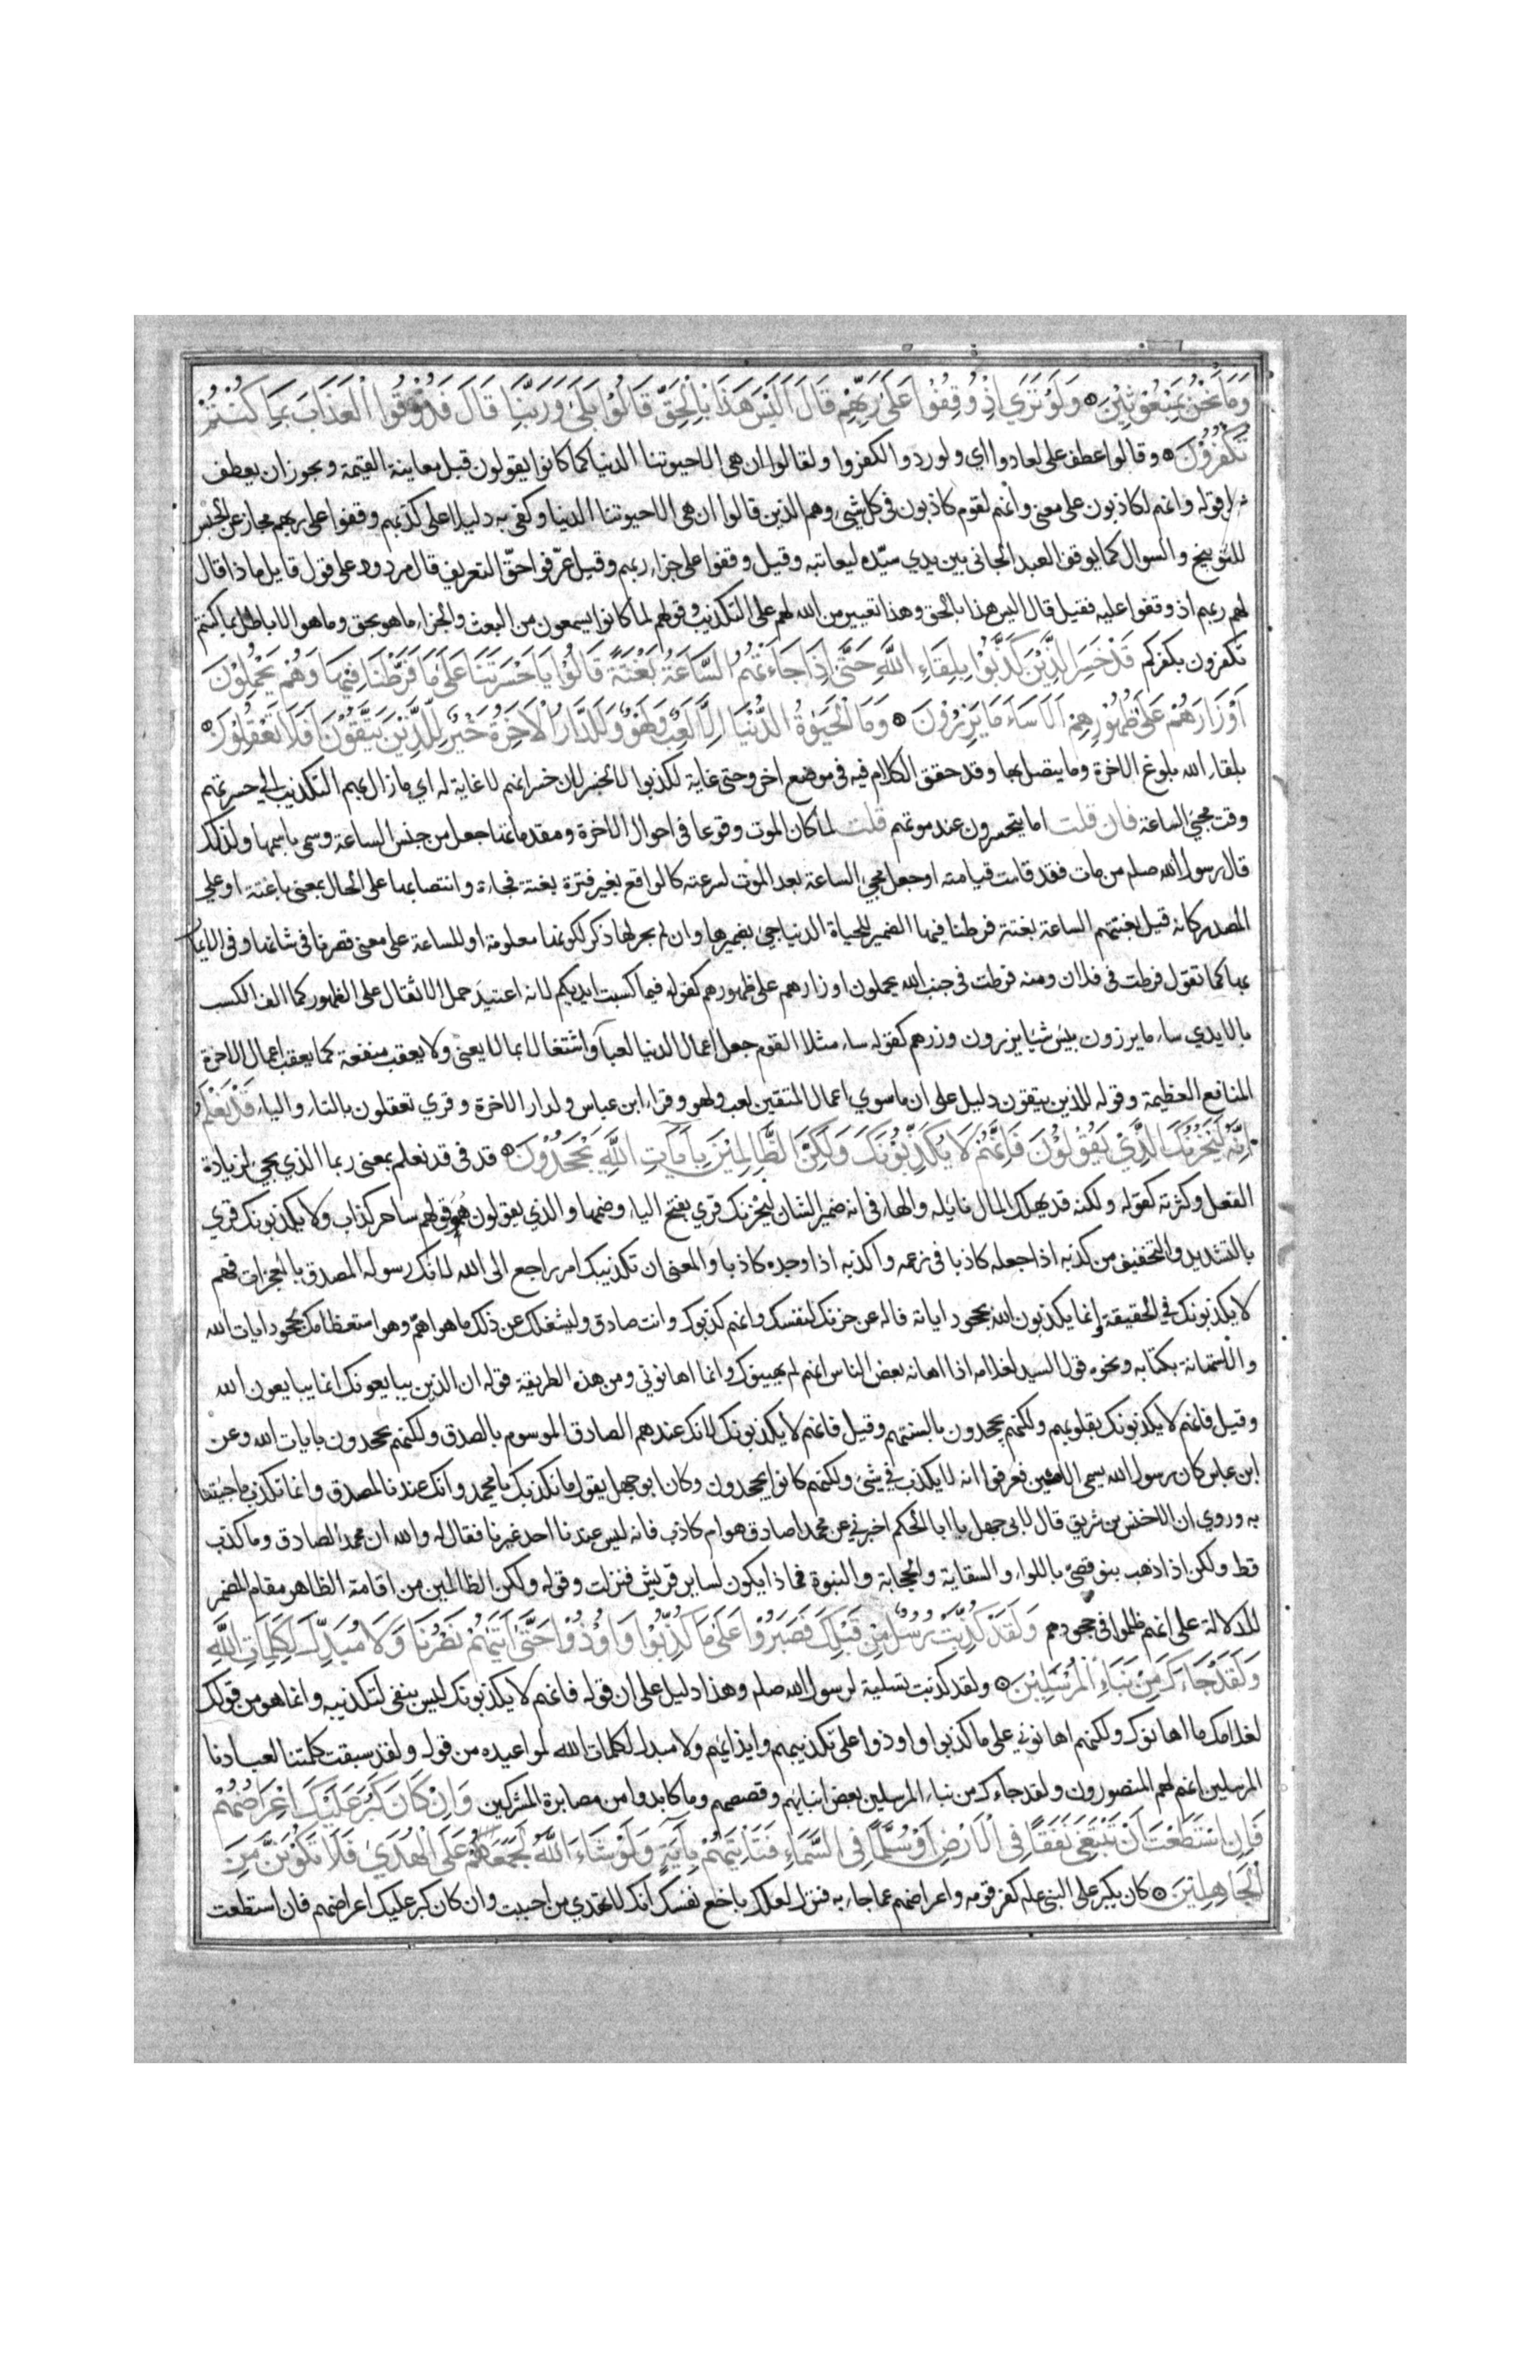 وَمَا نَحْنُ بِمَبْعُوثِيْنَ ۞ وَلَوْ تَرَي اِذْ وُقِفُوْا عَلَى رَبِّهِمْ قَالَ اَلَيْسَ هَذَا بِالْحَقِّ قَالُوْا بَلَى وَرَبِّنَا قَالَ فَذُوْقُوا الْعَذَابَ بِمَا كُنْتُمْ
تَكْفُرُوْنَ ۞ وقالوا عطف على لعادوا اي ولو ردوا لكفروا ولقالوا ان هي الا حيوتنا الدنيا كما كانوا يقولون قبل معاينة القيمة ويجوز ان يعطف
على قوله وانهم لكاذبون على معنى وانهم لقوم كاذبون في كل شيء وهم الذين قالوا ان هي الا حيوتنا الدنيا وكفى به دليلا على كذبهم وقفوا على ربهم مجاز عن الحبس
للتوبيخ والسوال كما يوقف العبد الجاني بين يدي سيّده ليعاتبه وقيل وقفوا على جزاء ربهم وقيل عرّفوا حقّ التعريف قال مردود على قول قايل ماذا قال
لهم ربهم اذ وقفوا عليه فقيل قال اليس هذا بالحق وهذا تعيير من الله لهم على التكذيب وقولهم لما كانوا يسمعون من البعث والجزاء ما هو بحق وما هو الا باطل بما كنتم
تكفرون بكفركم قَدْ خَسِرَ الَّذِيْنَ كَذَّبُوْا بِلِقَاءِ اللَّهِ حَتَّى اِذَا جَاءَتْهُمُ السَّاعَةُ بَغْتَةً قَالُوْا يَا حَسْرَتَنَا عَلَى مَا فَرَّطْنَا فِيْهَا وَهُمْ يَحْمِلُوْنَ
اَوْزَارَهُمْ عَلَى ظُهُوْرِهِمْ اَلَا سَاءَ مَا يَزِرُوْنَ ۞ وَمَا الْحَيَوٰةُ الدُّنْيَا اِلَّا لَعِبٌ وَلَهْوٌ وَلَلدَّارُ الْاٰخِرَةُ خَيْرٌ لِلَّذِيْنَ يَتَّقُوْنَ اَفَلَا تَعْقِلُوْنَ ۞
بلقاء الله بلوغ الاخرة وما يتصل بها وقد حقق الكلام فيه في موضع اخر وحتى غاية لكذبوا لا لخسر لان خسرانهم لا غاية له اي ما زال بهم التكذيب الي حسرتهم
وقت مجيء الساعة فان قلت اما يتحسرون عند موتهم قلت لما كان الموت وقوعا في احوال الاخرة ومقدماتها جعل من جنس الساعة وسمي باسمها ولذلك
قال رسول الله صلم من مات فقد قامت قيامته او جعل مجيء الساعة بعد الموت لسرعته كالواقع بغير فترة بغتة فجاة وانتصابها على الحال بمعنى باغتة او علي
المصدر كانه قيل بغتتهم الساعة بغتة فرطنا فيها الضمير للحياة الدنيا جيء بضميرها وان لم يجر لها ذكر لكونها معلومة او للساعة على معنى قصرنا في شانها وفي الايمان
بها كما تقول فرطت في فلان ومنه فرطت في جنب الله يحملون اوزارهم على ظهورهم كقوله فبما كسبت ايديكم لانه اعتيد حمل الاثقال على الظهور كما الف الكسب
بالايدي ساء ما يزرون بئس شئا يزرون وزرهم كقوله ساء مثلا القوم جعل اعمال الدنيا لعبا واشتغالا بما لا يعنى ولا يعقب منفعة كما يعقب اعمال الاخرة
المنافع العظيمة وقوله للذين يتقون دليل على ان ما سوي اعمال المتقين لعب ولهو وقراء ابن عباس ولدار الاخرة وقري تعقلون بالتاء والياء قَدْ نَعْلَمُ
اِنَّهُ لَيَحْزُنُكَ الَّذِيْ يَقُوْلُوْنَ فَاِنَّهُمْ لَا يُكَذِّبُوْنَكَ وَلَكِنَّ الظَّالِمِيْنَ بِاٰيَاتِ اللَّهِ يَجْحَدُوْنَ ۞ قد في قد نعلم بمعنى ربما الذي يجيء لزيادة
الفعل وكثرته كقوله ولكنه قد يهلك المال نائله والهاء في انه ضمير الشان ليحزنك قري بفتح الياء وضمها والذي يقولون هو قولهم ساحر كذاب ولا يكذبونك قري
بالتشديد والتخفيف من كذبه اذا جعله كاذبا في زعمه واكذبه اذا وجده كاذبا والمعنى ان تكذيبك امر راجع الى الله لانك رسوله المصدق بالمعجزات فهم
لا يكذبونك في الحقيقة وانما يكذبون الله بجحود اياته فاله عن حزنك لنفسك وانهم كذبوك وانت صادق وليشغلك عن ذلك ما هو اهمّ وهو استعظامك بجحود ايات الله
والاستهانة بكتابه ونحوه قول السيد لغلامه اذا اهانه بعض الناس انهم لم يهينوك وانما اهانوني ومن هذه الطريقة قوله ان الذين يبايعونك انما يبايعون الله
وقيل فانهم لا يكذبونك بقلوبهم ولكنهم يجحدون بالسنتهم وقيل فانهم لا يكذبونك لانك عندهم الصادق الموسوم بالصدق ولكنهم يجحدون بايات الله وعن
ابن عباس كان رسول الله يسمى الامين فعرفوا انه لا يكذب في شيء ولكنهم كانوا يجحدون وكان ابو جهل يقول ما نكذبك يا محمد وانك عندنا لمصدق وانما نكذب ما جئتنا
به وروي ان الاخنس بن شريق قال لابي جهل يا ابا الحكم اخبرني عن محمد اصادق هو ام كاذب فانه ليس عندنا احد غيرنا فقال له والله ان محمدا لصادق وما كذب
قط ولكن اذا ذهب بنو قصيّ باللواء والسقاية والحجابة والنبوة فماذا يكون لساير قريش فنزلت وقوله ولكن الظالمين من اقامة الظاهر مقام المضمر
للدلالة على انهم ظلموا في جحودهم وَلَقَدْ كُذِّبَتْ رُسُلٌ مِنْ قَبْلِكَ فَصَبَرُوْا عَلَى مَا كُذِّبُوْا وَاُوْذُوْا حَتَّى اَتٰيهُمْ نَصْرُنَا وَلَا مُبَدِّلَ لِكَلِمَاتِ اللَّهِ
وَلَقَدْ جَاءَكَ مِنْ نَبَاءِ الْمُرْسَلِيْنَ ۞ ولقد كذبت تسلية لرسول الله صلم وهذا دليل على ان قوله فانهم لا يكذبونك ليس بنفى لتكذيبه وانما هو من قولك
لغلامك ما اهانوك ولكنهم اهانوني على ما كذبوا واوذوا على تكذيبهم وايذايهم ولا مبدل لكلمات الله لمواعيده من قوله ولقد سبقت كلمتنا لعبادنا
المرسلين انهم لهم المنصورون ولقد جاءك من نباء المرسلين بعض انبايهم وقصصهم وما كابدوا من مصابرة المشركين وَاِنْ كَانَ كَبُرَ عَلَيْكَ اِعْرَاضُهُمْ
فَاِنِ اسْتَطَعْتَ اَنْ تَبْتَغِىَ نَفَقًا فِى الْاَرْضِ اَوْ سُلَّمًا فِى السَّمَاءِ فَتَاْتِيَهُمْ بِاٰيَةٍ وَلَوْ شَاءَ اللَّهُ لَجَمَعَهُمْ عَلَى الْهُدَي فَلَا تَكُوْنَنَّ مِنَ
الْجَاهِلِيْنَ ۞ كان يكبر على النبي علم كفر قومه واعراضهم عما جاء به فنزل لعلك باخع نفسك انك لا تهدي من احببت وان كان كبر عليك اعراضهم فان استطعت